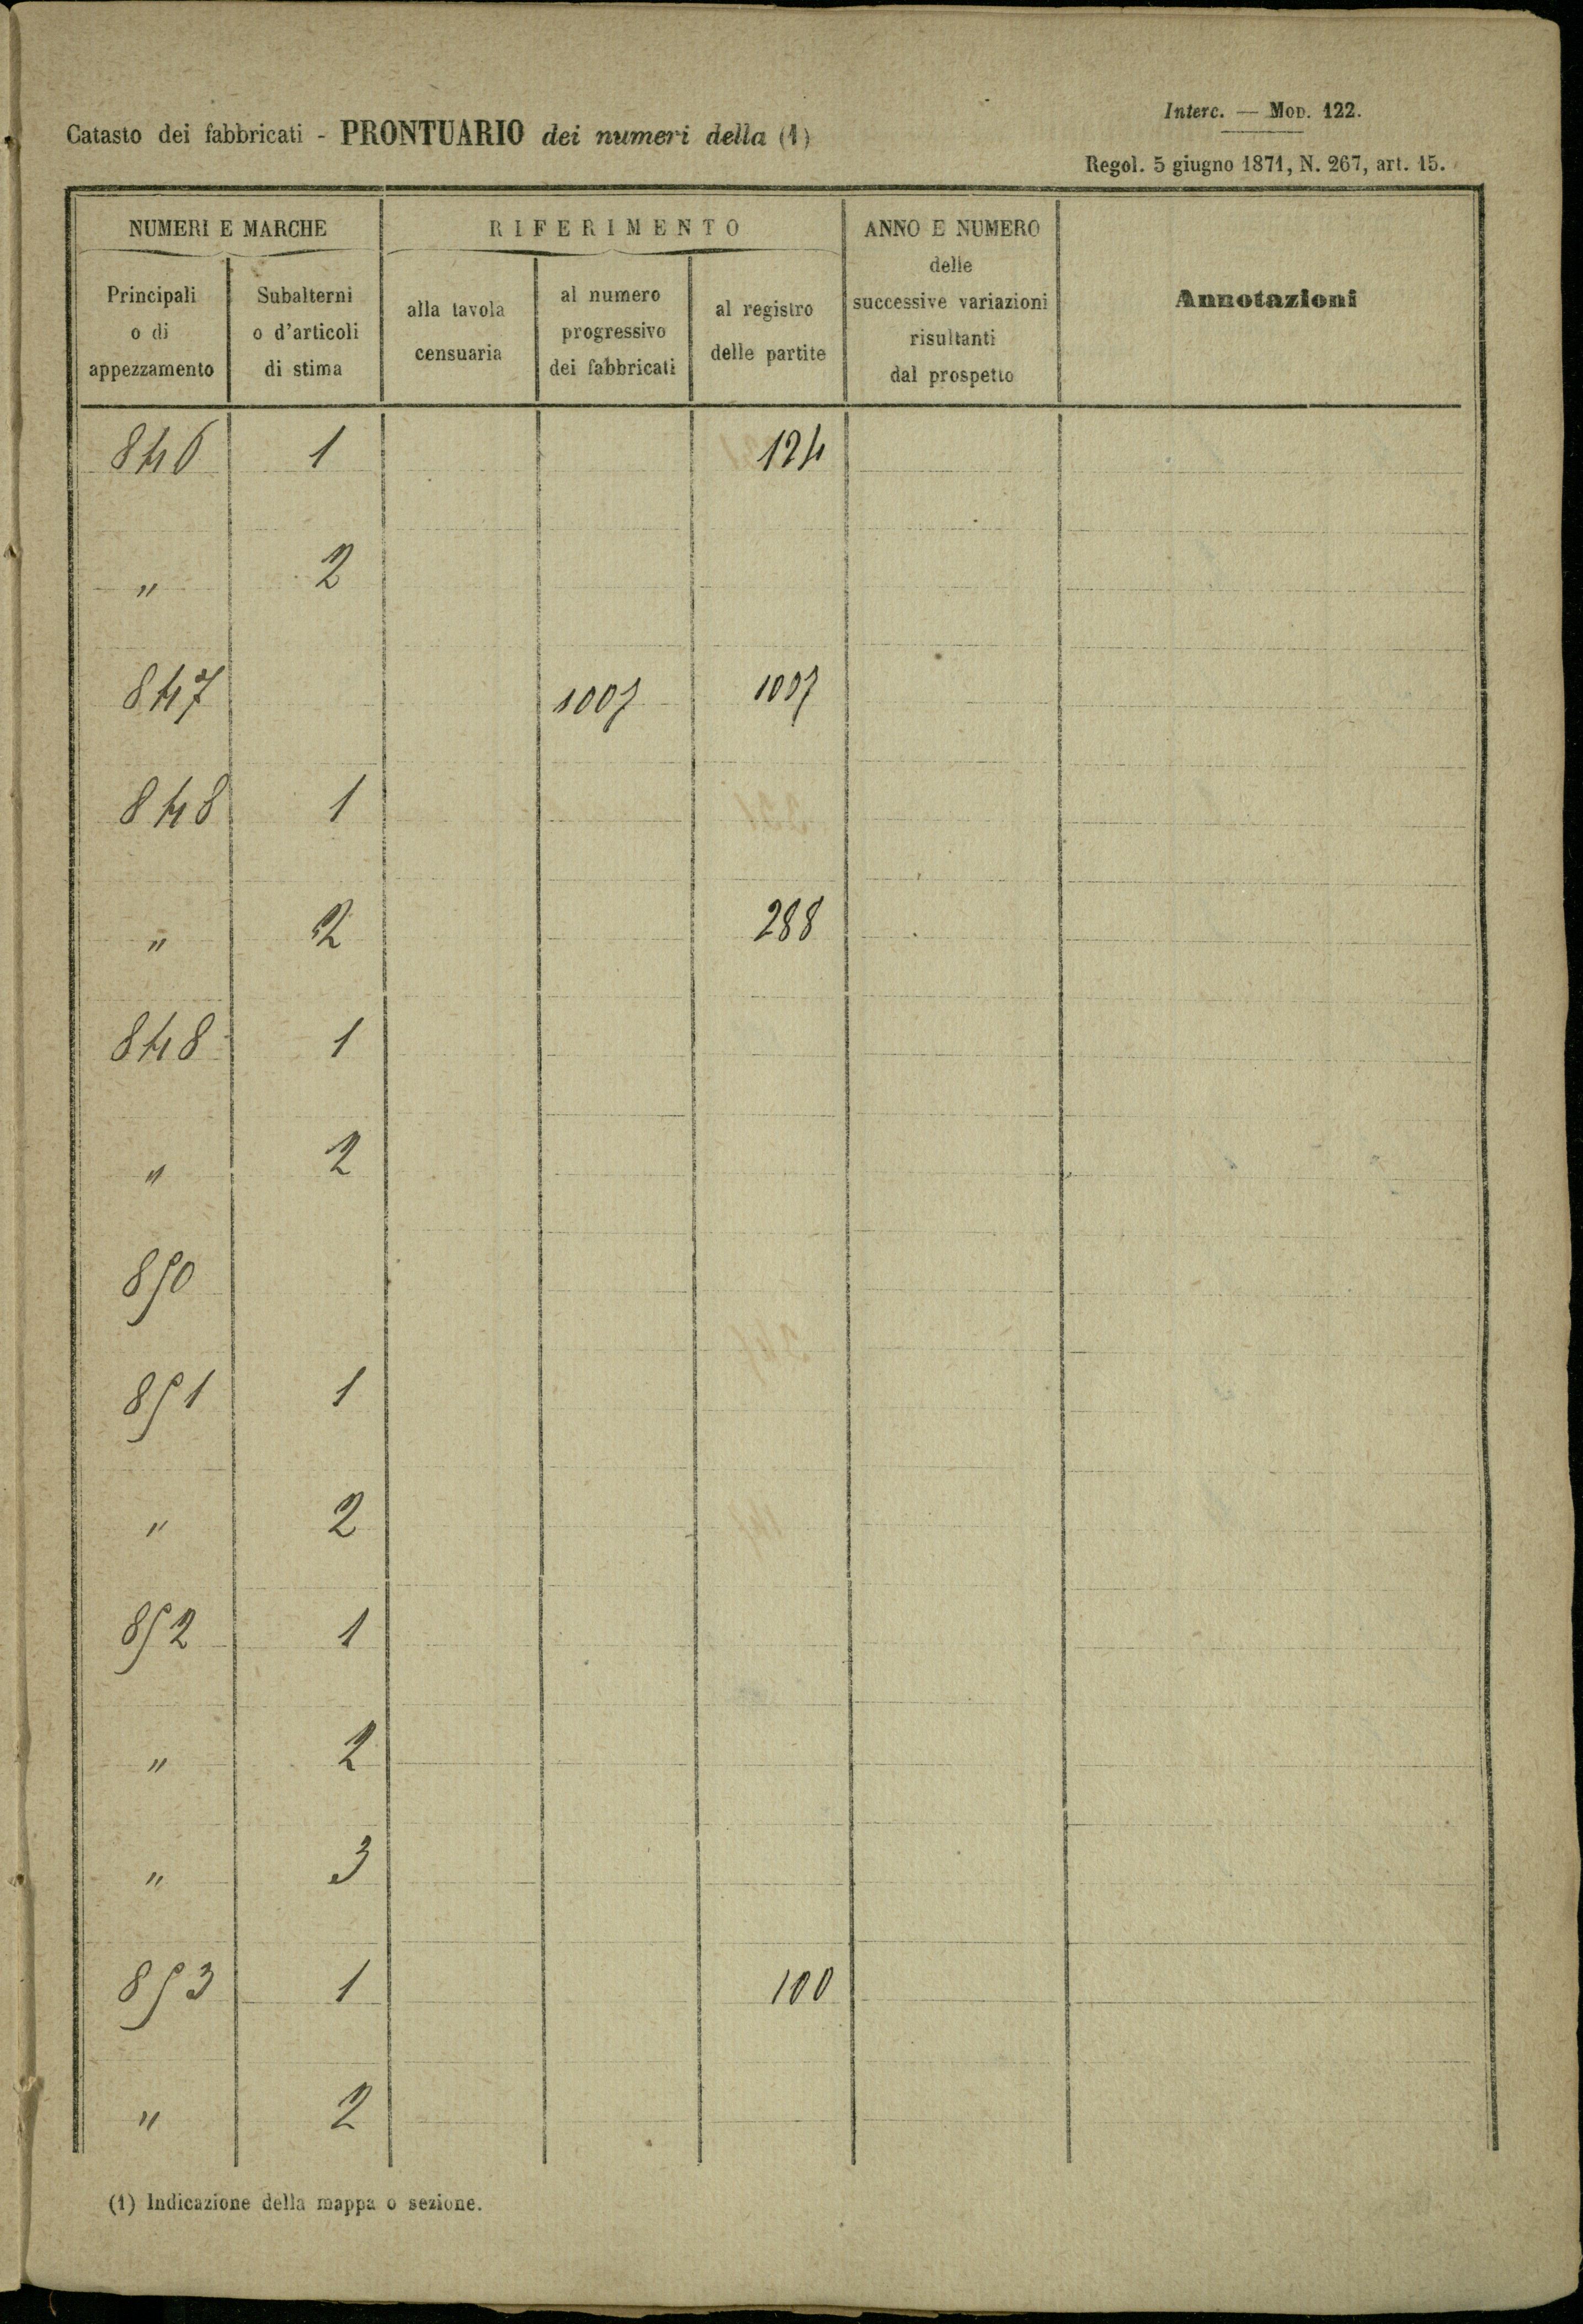 Interc. — Mod. 122.
Catasto dei fabbricati - PRONTUARIO dei numeri della (1)
Regol. 5 giugno 1871, N. 267, art. 15.
NUMERI E MARCHE
RIFERIMENTO
ANNO E NUMERO
delle
successive variazioni
risultanti
dal prospetto
Annotazioni
Principali
o di
appezzamento
Subalterni
o d'articoli
di stima
alla tavola
censuaria
al numero
progressivo
dei fabbricati
al registro
delle partite
846 1 124
" 2
847 1007 1007
848 1
" 2 288
848 1
" 2
850
851 1
" 2
852 1
" 2
" 3
853 1 100
" 2
(1) Indicazione della mappa o sezione.